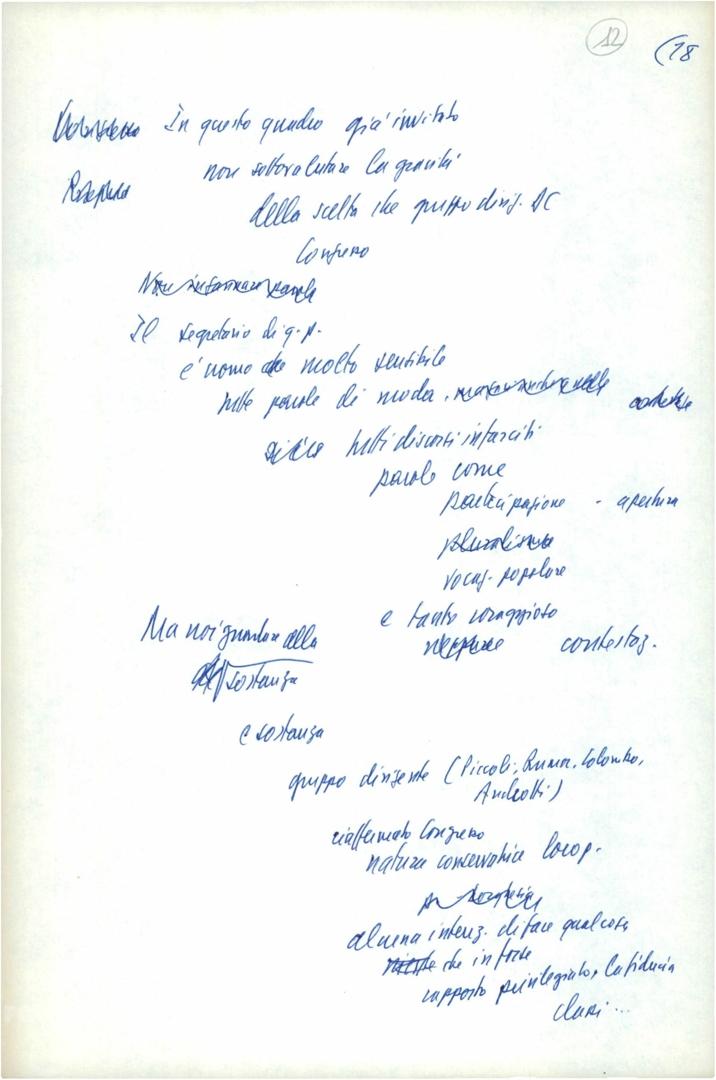 12 (18
In questo quadro già invitato
non sottovalutare la gravità
della scelta che gruppo dirig. DC
Congresso
Il segretario di q. p.
è uomo molto sensibile
tutte parole di moda.
tutti discorsi infarciti
parole come
partecipazione - apertura
pluralismo
vocaz. popolare
e tanto coraggioso
contestaz.
Ma noi guardare alla
sostanza
e sostanza
gruppo dirigente (Piccoli, Rumor, Colombo,
Andreotti)
riaffermato Congresso
natura conservatrice
alcuna intenz. di fare qualcosa
che
rapporto privilegiato, la fiducia